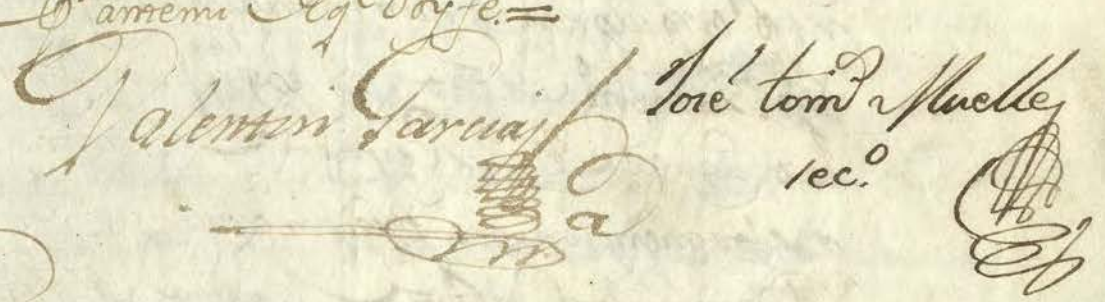 antemi Esq doy fe. =
Valentin Garcia
José tomˢ Muelle
secº